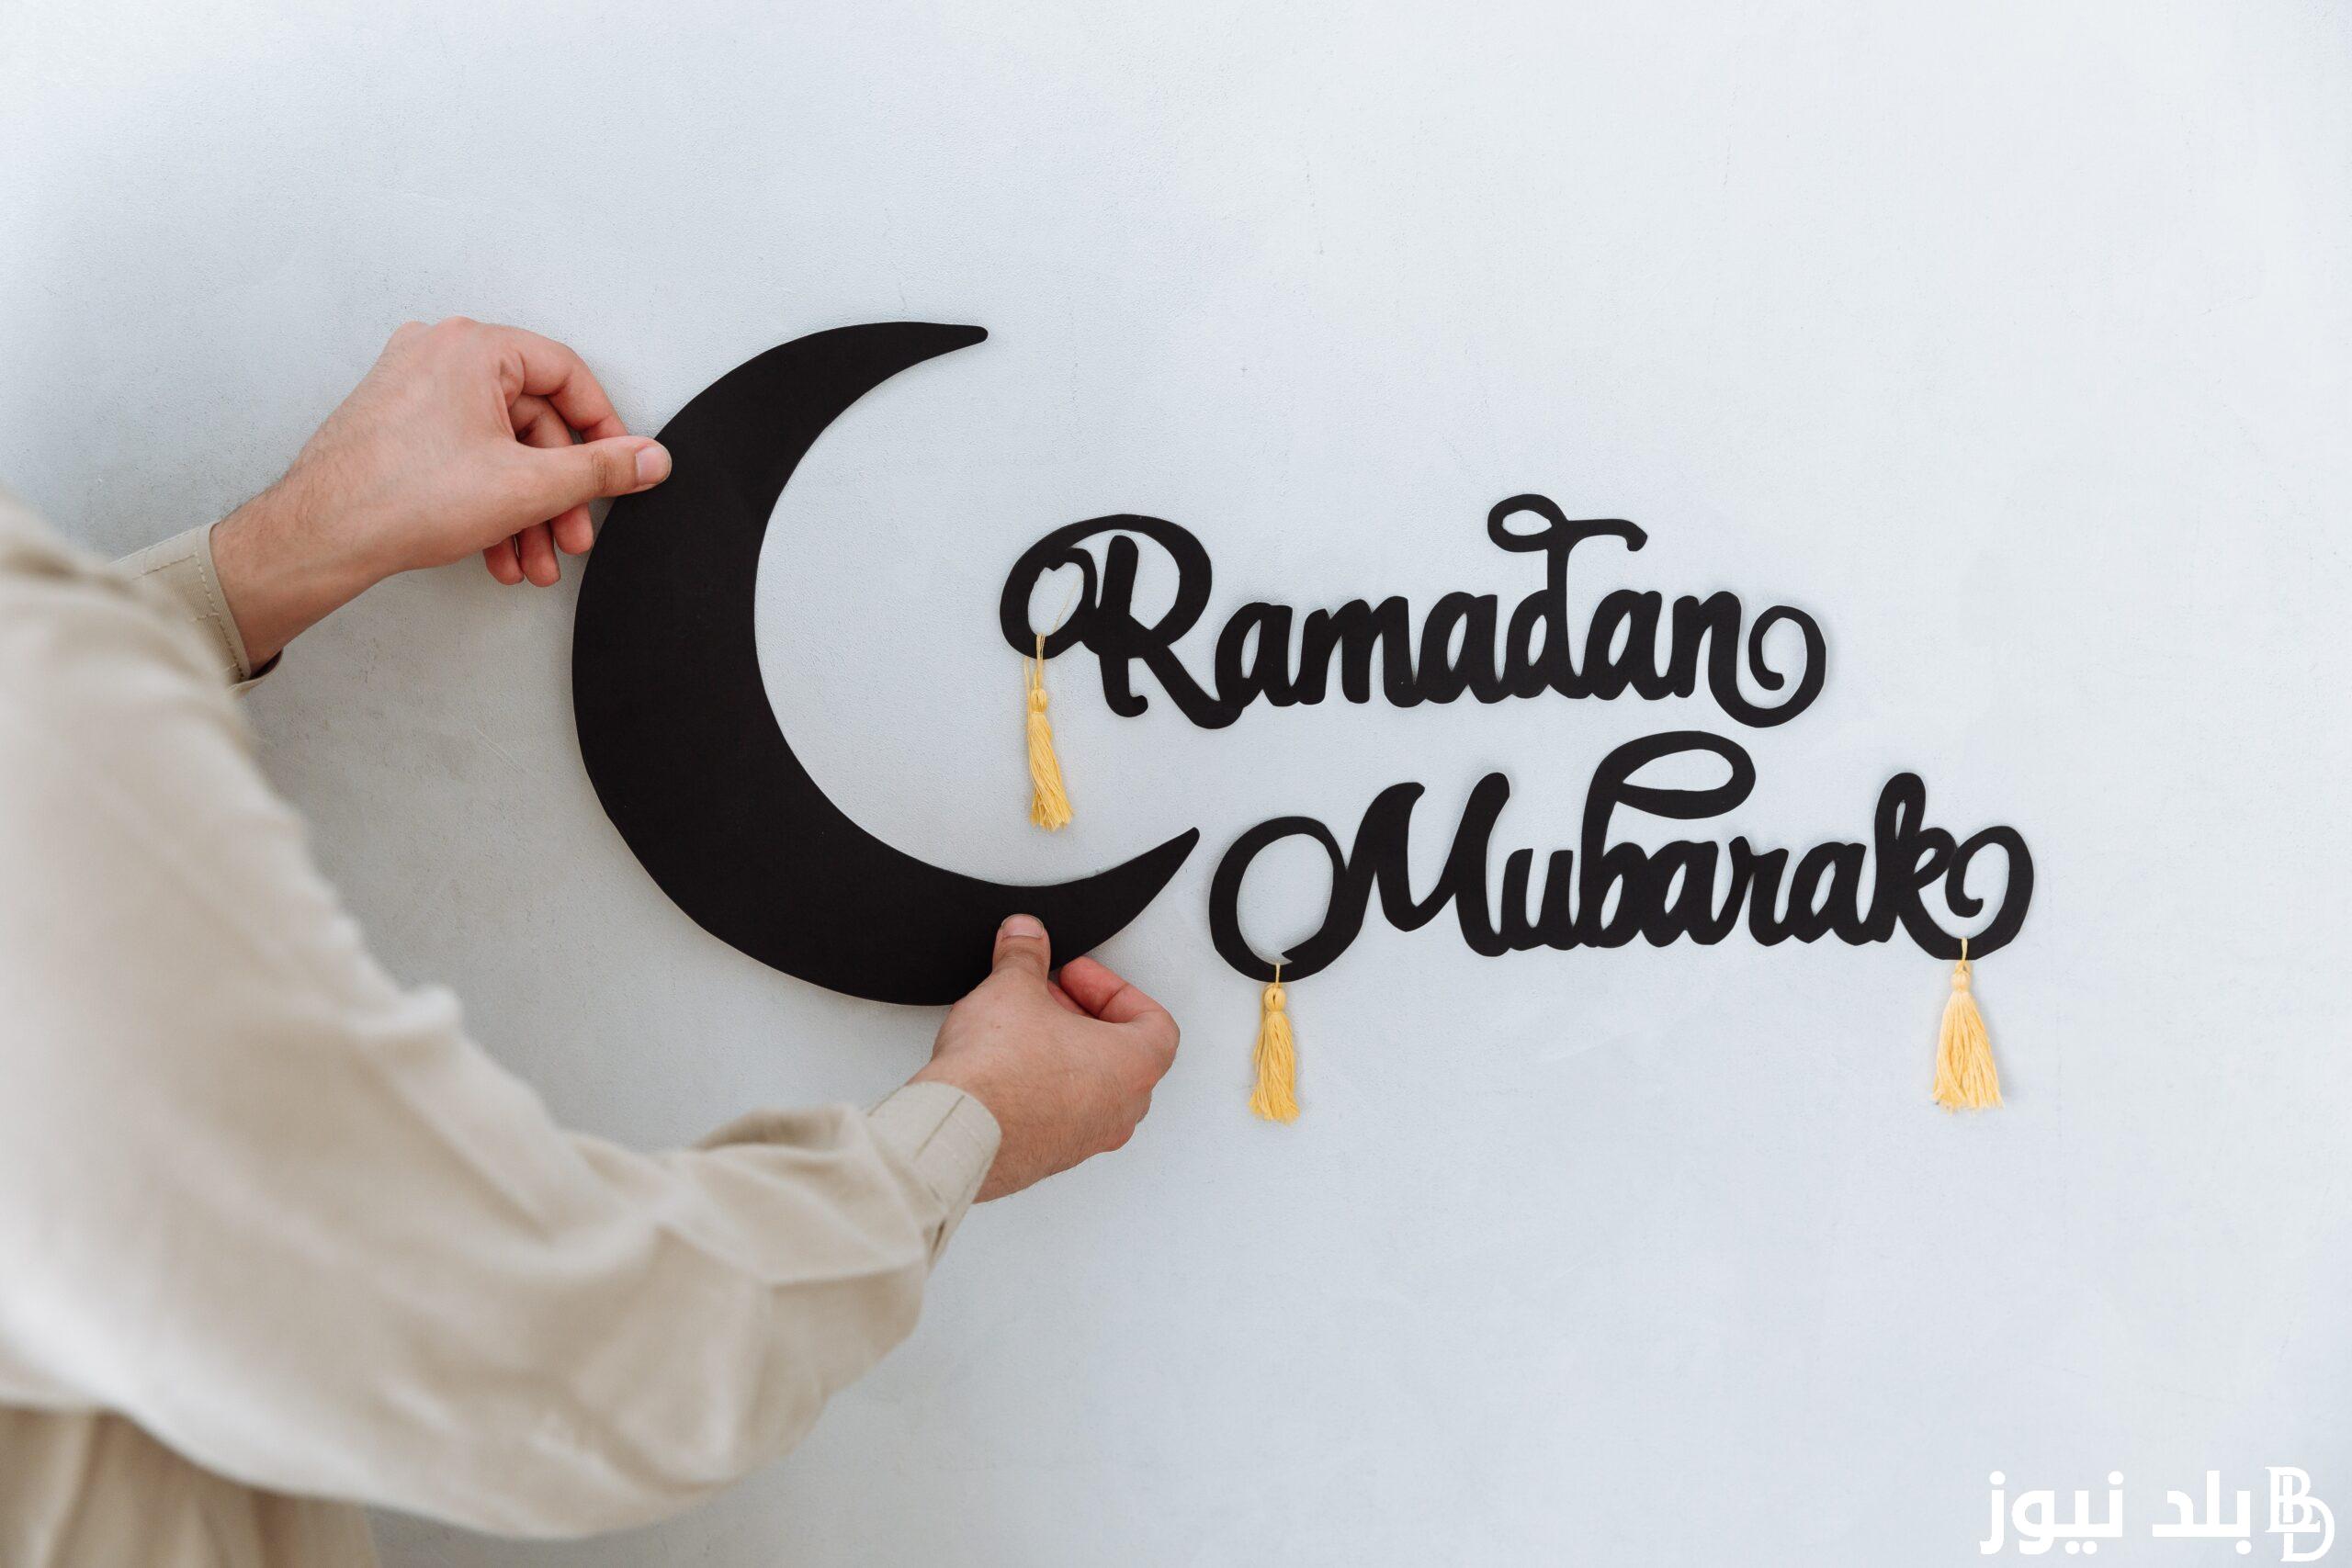 Ramadan
Mubarak
بلد نيوز